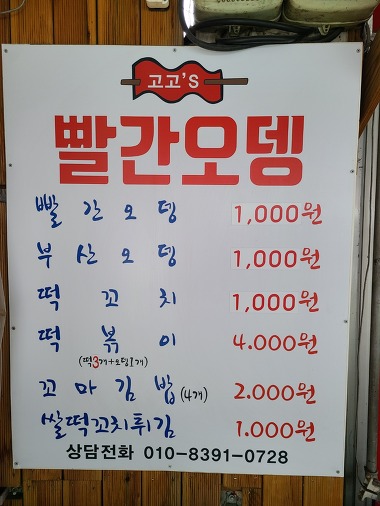 고고'S
빨간오뎅
빨간오뎅 1,000원
부산오뎅 1,000원
떡꼬치 1,000원
떡볶이 4.000원
(떡3개+오뎅1개)
꼬마김밥(4개) 2.000원
쌀떡꼬치튀김 1.000원
상담전화 010-8391-0728